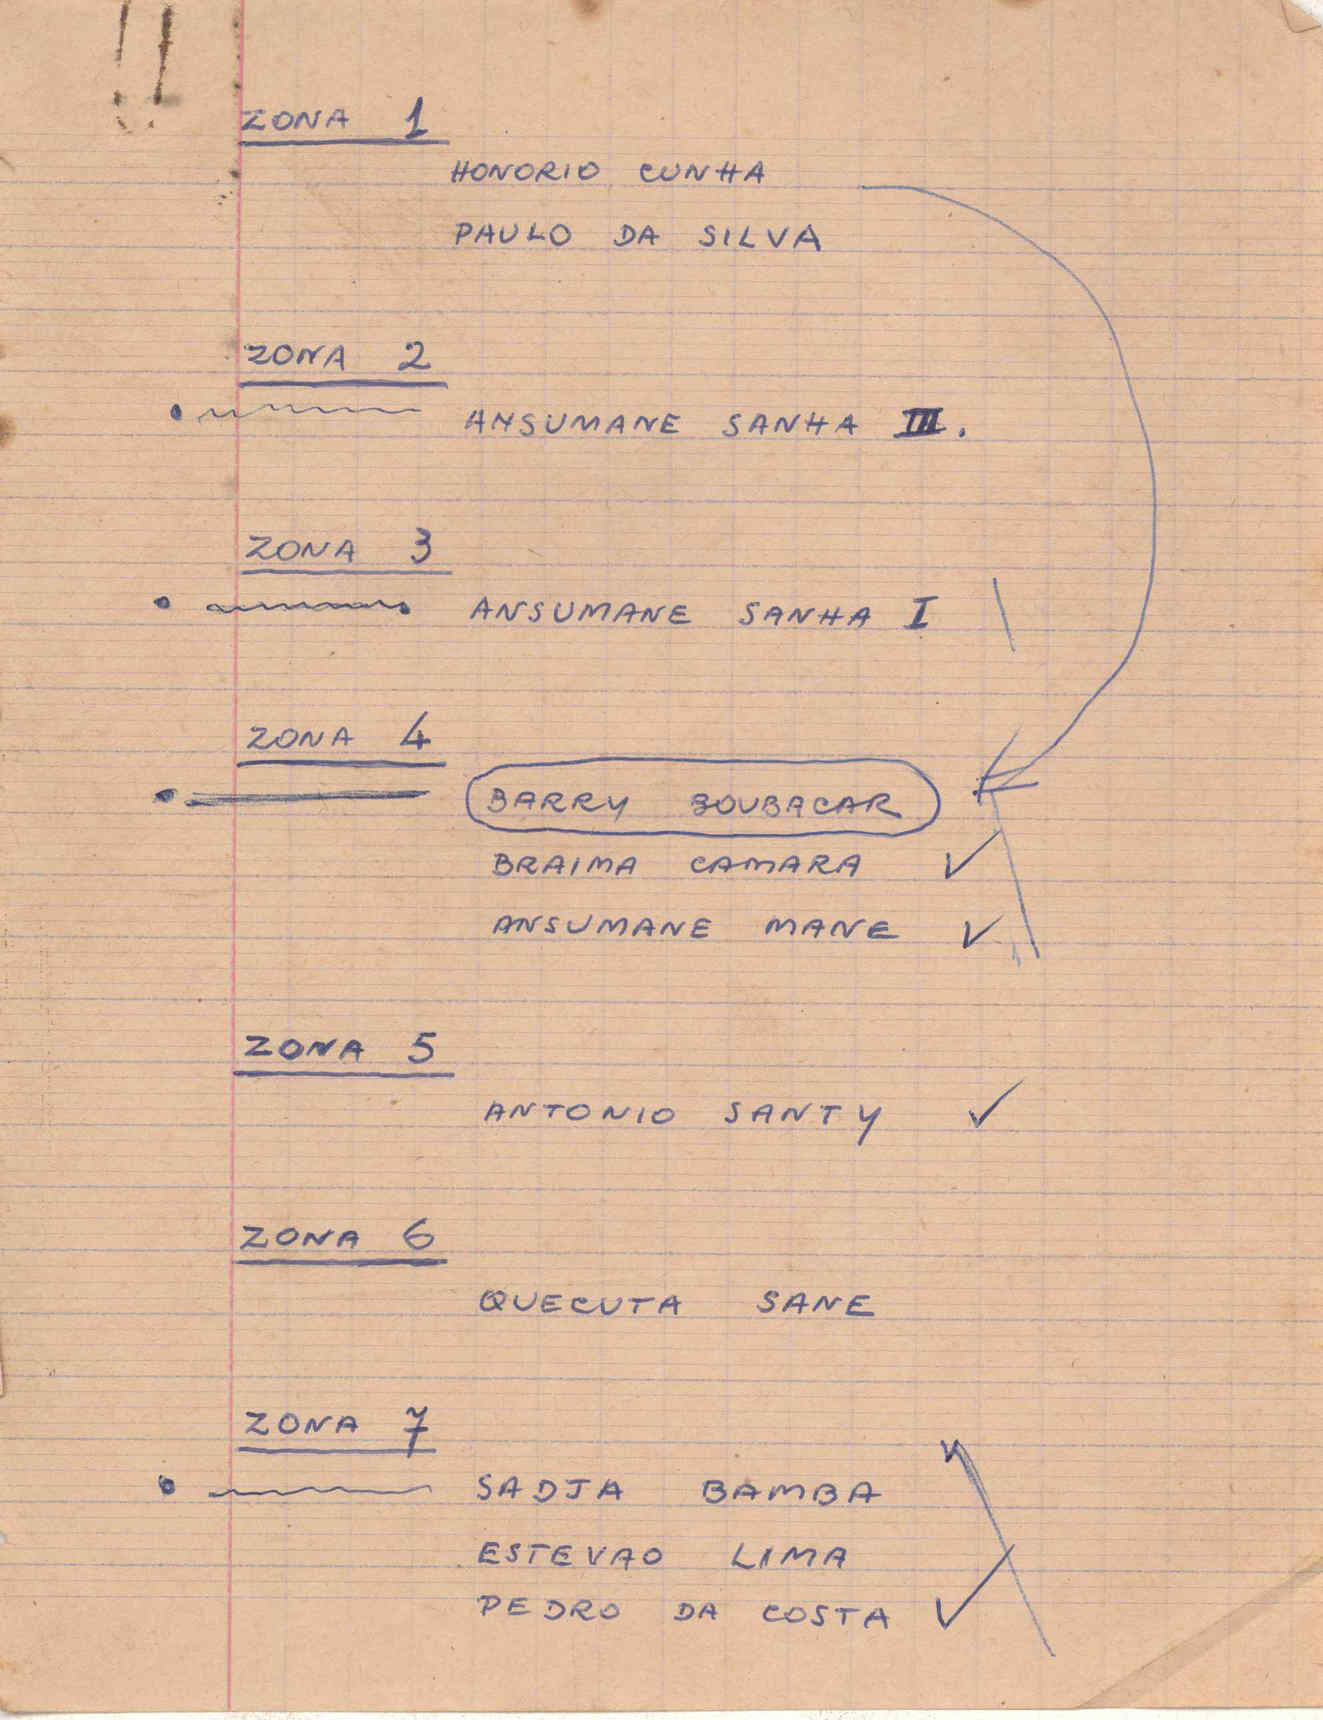 ZONA 1
HONORIO CUNHA
PAULO DA SILVA
ZONA 2
ANSUMANE SANHA III.
ZONA 3
ANSUMANE SANHA I
ZONA 4
BARRY BOUBACAR
BRAIMA CAMARA ✓
ANSUMANE MANE ✓
ZONA 5
ANTONIO SANTY ✓
ZONA 6
QUECUTA SANE
ZONA 7
SADJA BAMBA
ESTEVAO LIMA
PEDRO DA COSTA ✓